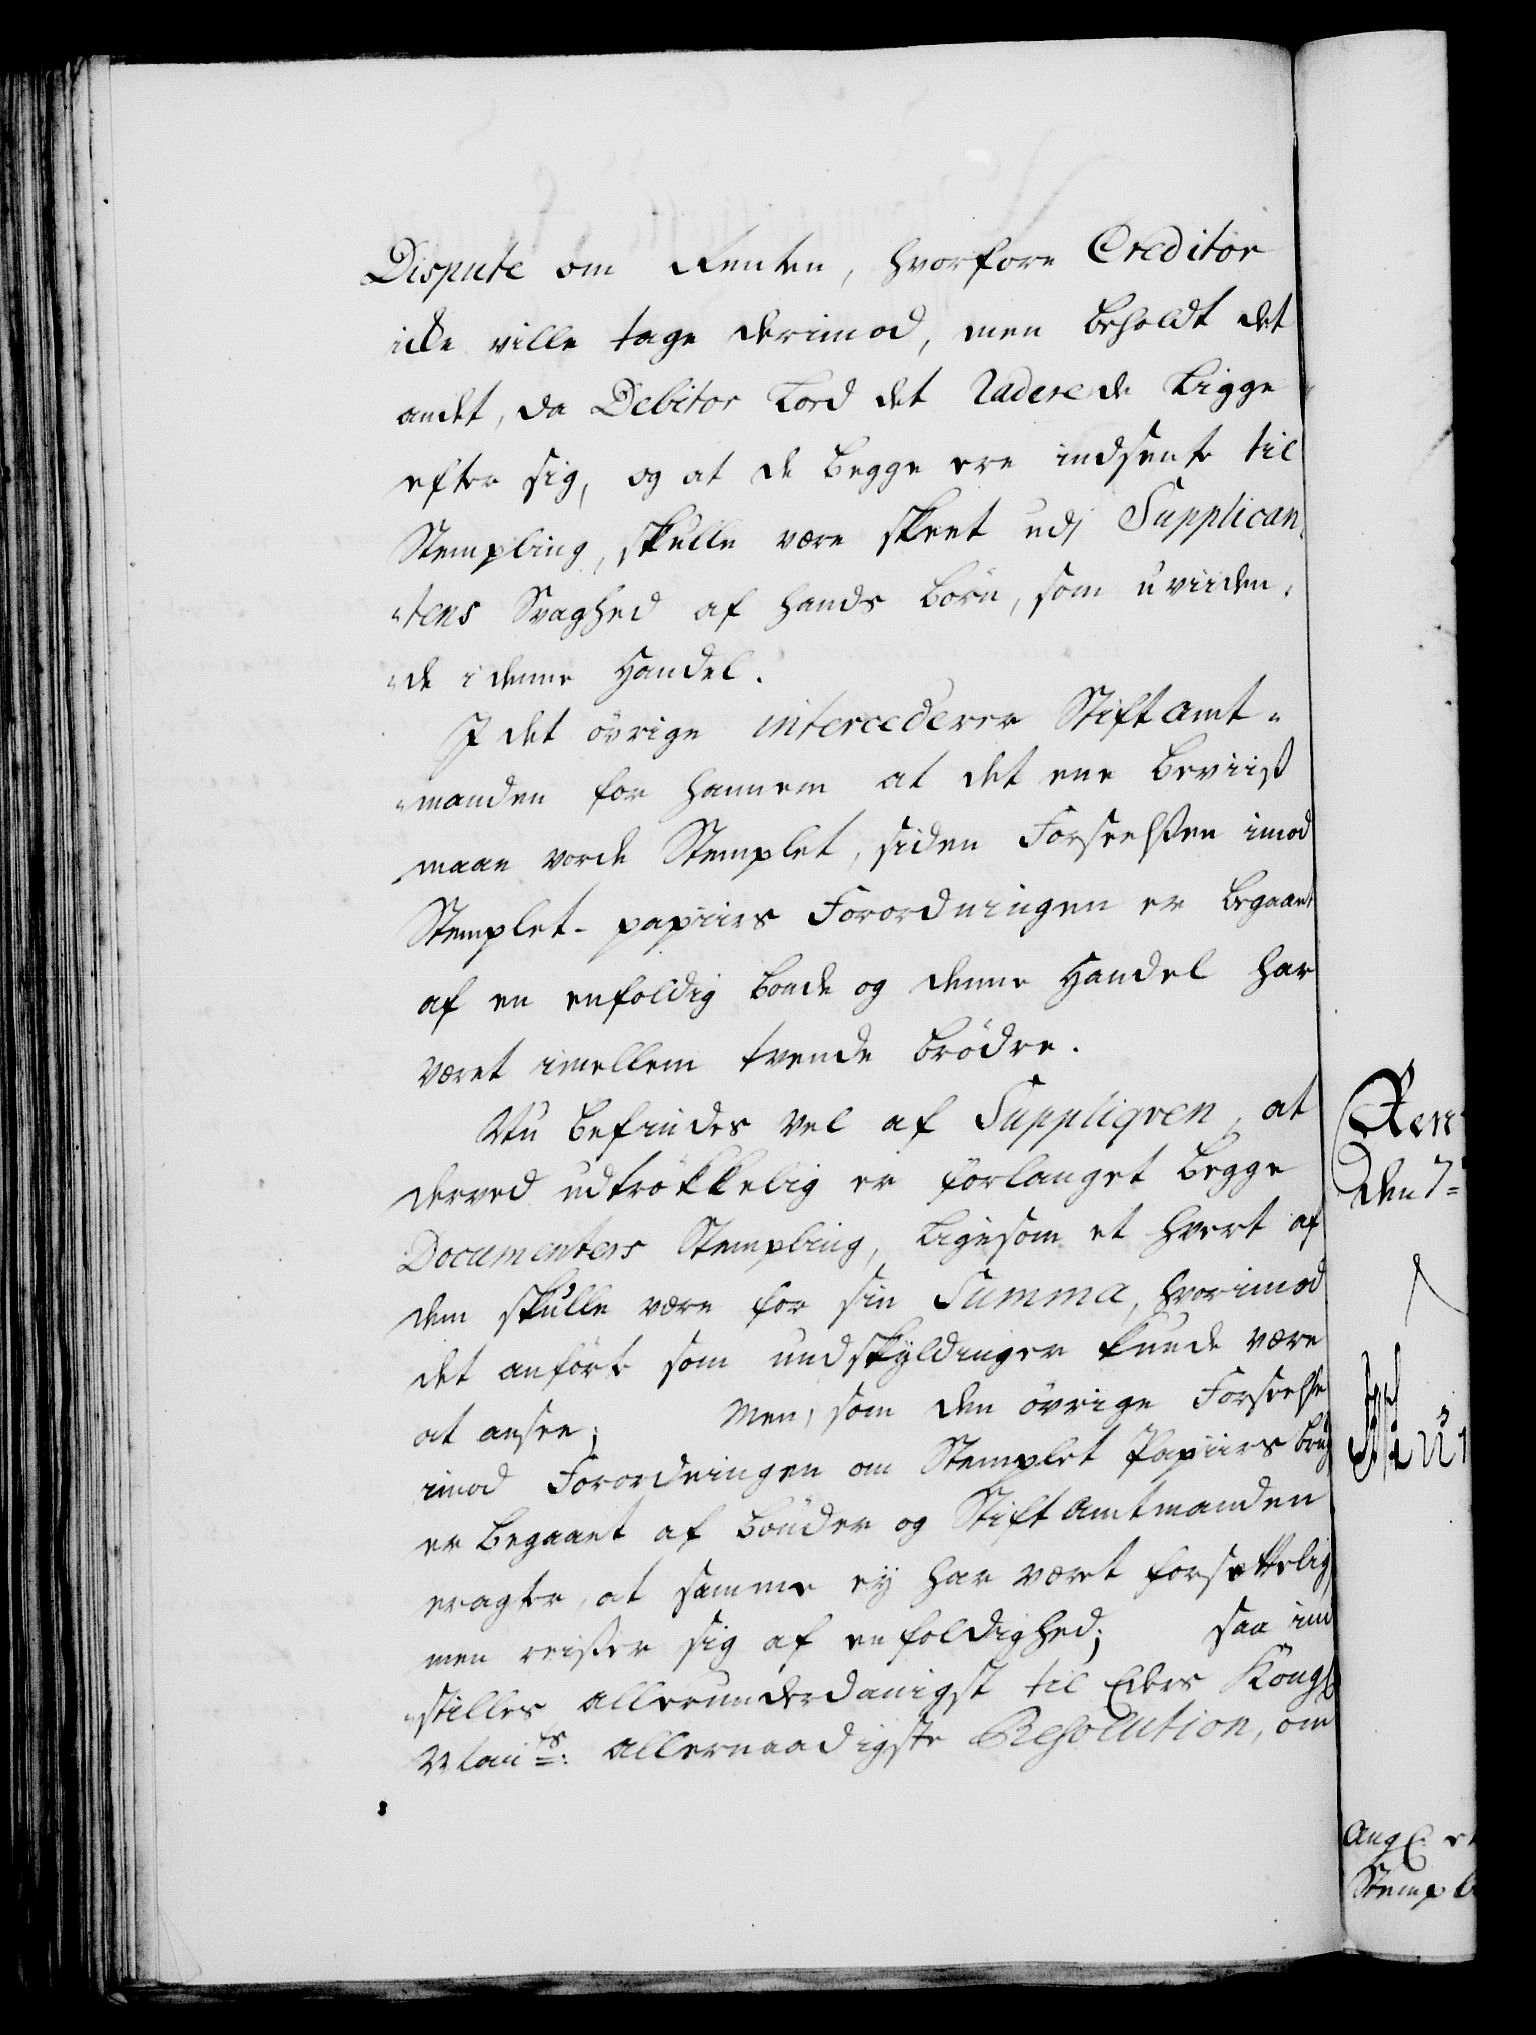 Dispute om Renten, hvorfore Creditor
icke ville tage derimod, men beholdt det
andet, da Debitor lod det Raderede ligge
efter sig, og at de begge ere indsente til
Stempling, skulle være skeet udj Supplican,
„tens Svaghed af hands Børn, som uviiden,
„de i denne Handel.
I det øvrige intercederer Stiftamt„
„manden for hannem at det ene Beviis
maae vorde Stemplet, siden Forseelsen imod
Stemplet-papiirs Forordningen er begaaet
af en enfoldig Bonde og denne Handel har
været imellem tvende Brødre.
Nu befindes vel af Suppliqven, at
derved udtrökkelig er forlanget begge
Documenters Stempling, ligesom et hvert af
dem skulle være for sin Summa, hvorimod
det anførte som undskyldinger kunde være
at ansee; Men, som den øvrige Forseelse
imod Forordningen om Stemplet Papiirs brug
er begaaet af bønder og Stiftamtmanden
eragter, at samme ey har været forsettelig
men reiser sig af enfoldighed; saa ind
„stilles allerunderdanigst til Eders Kongl
Maits: allernaadigste Resolution, om
Ren
den 7=
Angl. et
Stempl